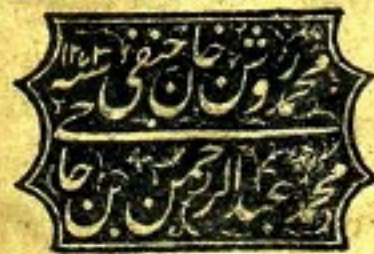 محمد روشن خان حنفی سنه ۱۲۷۳
محمد عبد الرحمن بن حاجی